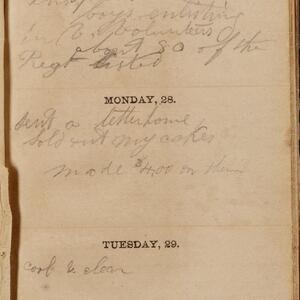 boys enlisting
in V. Volunteers
about 80 of the
Regt listed
MONDAY, 28.
sent a letter home
sold out my cakes
made $4.00 on them
TUESDAY, 29.
cool & clear